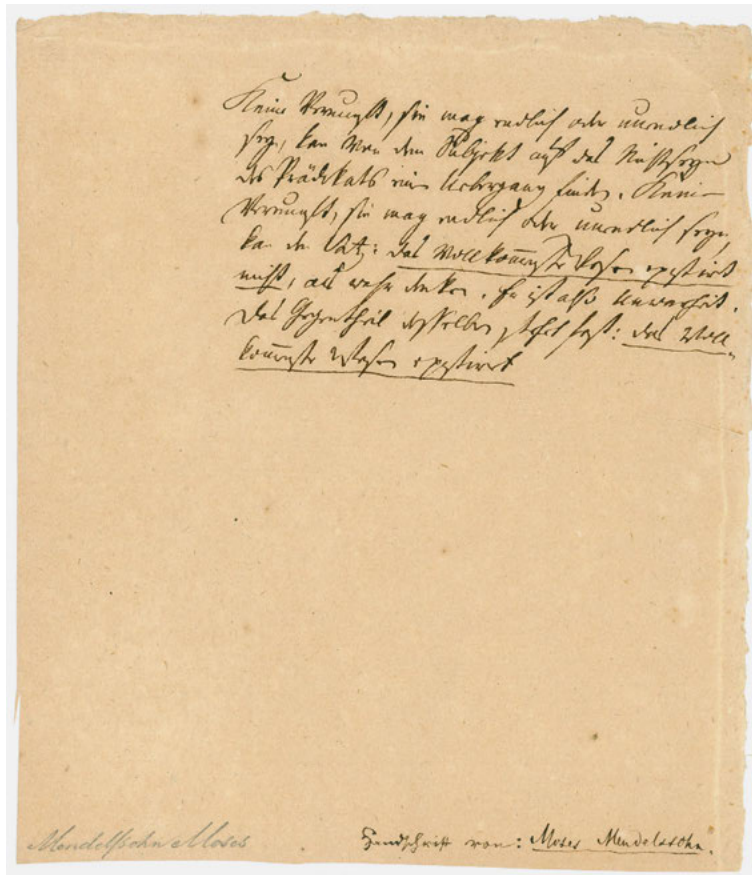 Keine Vernunft, sie mag endlich oder unendlich
seyn, kan von dem Subjekt auf das Nichtseyn
des Prädikats ein Uebergang finden. Keine
Vernunft, sie mag endlich oder unendlich seyn,
kan den Satz: das Vollkom̄enste Wesen existirt
nicht, als wahr denken. Er ist also Unwarheit.
Das Gegentheil desselben stehet fest: das Voll-
kom̄enste Wesen existirt
Mendelssohn Moses
Handschrift von: Moses Mendelssohn.